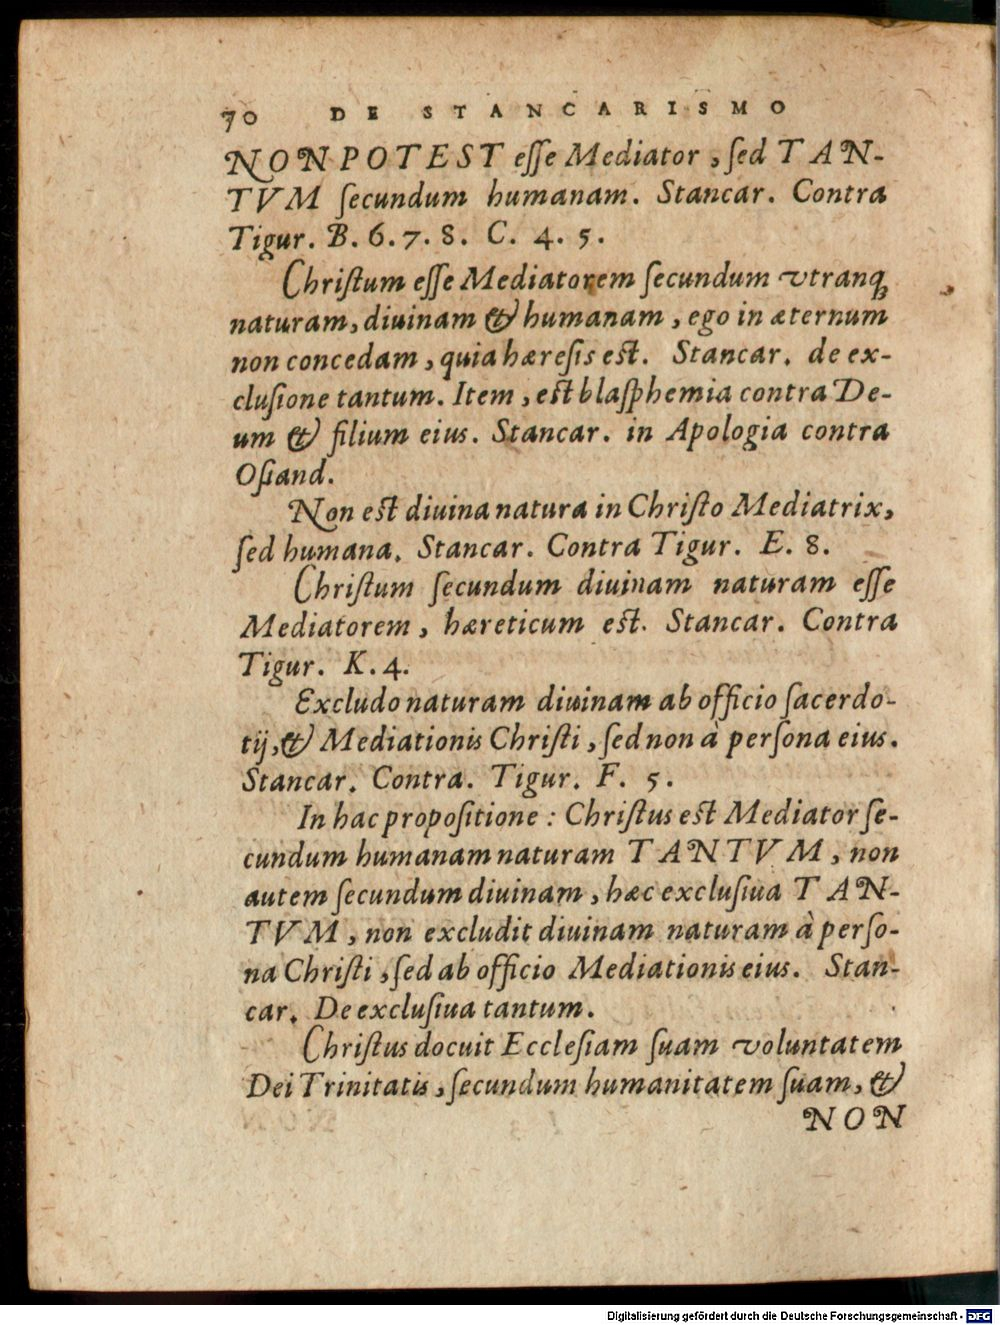 70 DE STANCARISMO
NON POTEST eſſe Mediator, ſed TAN-
TVM ſecundum humanam. Stancar. Contra
Tigur. B. 6. 7. 8. C. 4. 5.
Chriſtum eſſe Mediatorem ſecundum vtranq́ꝫ
naturam, diuinam & humanam, ego in æternum
non concedam, quia hæreſis eſt. Stancar. de ex-
cluſione tantum. Item, eſt blaſphemia contra De-
um & filium eius. Stancar. in Apologia contra
Oſiand.
Non eſt diuina natura in Chriſto Mediatrix,
ſed humana. Stancar. Contra Tigur. E. 8.
Chriſtum ſecundum diuinam naturam eſſe
Mediatorem, hæreticum eſt. Stancar. Contra
Tigur. K. 4.
Excludo naturam diuinam ab officio ſacerdo-
tij, & Mediationis Chriſti, ſed non à perſona eius.
Stancar. Contra. Tigur. F. 5.
In hac propoſitione: Chriſtus eſt Mediator ſe-
cundum humanam naturam TANTVM, non
autem ſecundum diuinam, hæc excluſiua TAN-
TVM, non excludit diuinam naturam à perſo-
na Chriſti, ſed ab officio Mediationis eius. Stan-
car. De excluſiua tantum.
Chriſtus docuit Eccleſiam ſuam voluntatem
Dei Trinitatis, ſecundum humanitatem ſuam, &
NON
Digitalisierung gefördert durch die Deutsche Forschungsgemeinschaft - DFG